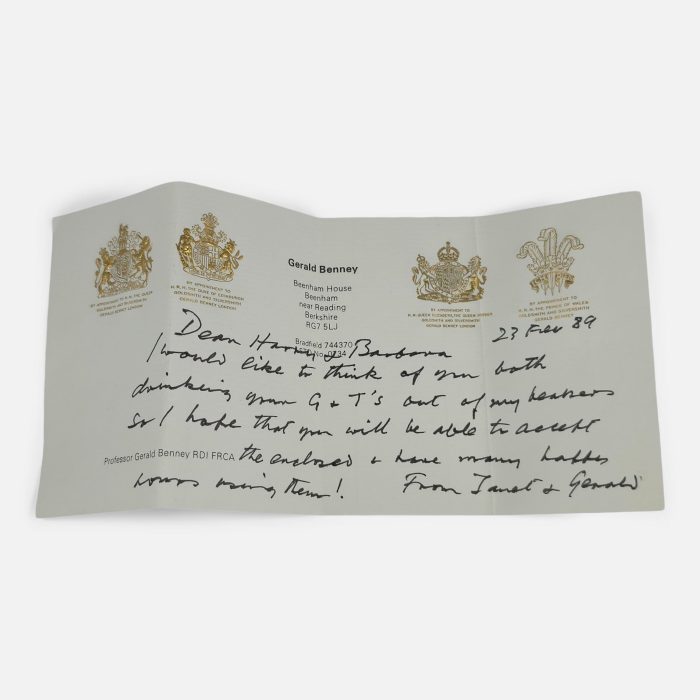 BY APPOINTMENT TO H.M. THE QUEEN
GOLDSMITH AND SILVERSMITH
GERALD BENNEY LONDON
BY APPOINTMENT TO
H.R.H. THE DUKE OF EDINBURGH
GOLDSMITH AND SILVERSMITH
GERALD BENNEY LONDON
Gerald Benney
Beenham House
Beenham
near Reading
Berkshire
RG7 5LJ
Bradfield 744370
BY APPOINTMENT TO
H.M. QUEEN ELIZABETH, THE QUEEN MOTHER
GOLDSMITH AND SILVERSMITH
GERALD BENNEY LONDON
BY APPOINTMENT TO
H.R.H. THE PRINCE OF WALES
GOLDSMITH AND SILVERSMITH
GERALD BENNEY LONDON
23 Feb 89
Dear & Barbara
I would like to think of you both
drinking your G & T's out of my beakers
so I hope that you will be able to accept
Professor Gerald Benney RDI FRCA
the enclosed & have many happy
hours using them! From Janet & Gerald